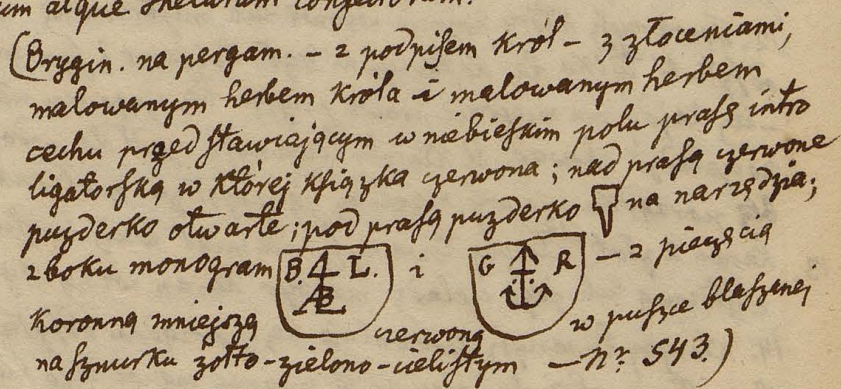 um atque
(Orygin. na pergam. – z podpisem król – z złoceniami,
malowanym herbem króla i malowanym herbem
cechu przedstawiającym w niebieskim polu prasę intro
ligatorską w której książka czerwona; nad prasą czerwone
puzderko otwarte; pod prasą puzderko na narzędzia;
z boku monogram B. L. i G R – z pieczęcią
koronną mniejszą czerwoną w puszce blaszanej
na sznurku żółto-zielono-cielistym – Nr 543.)